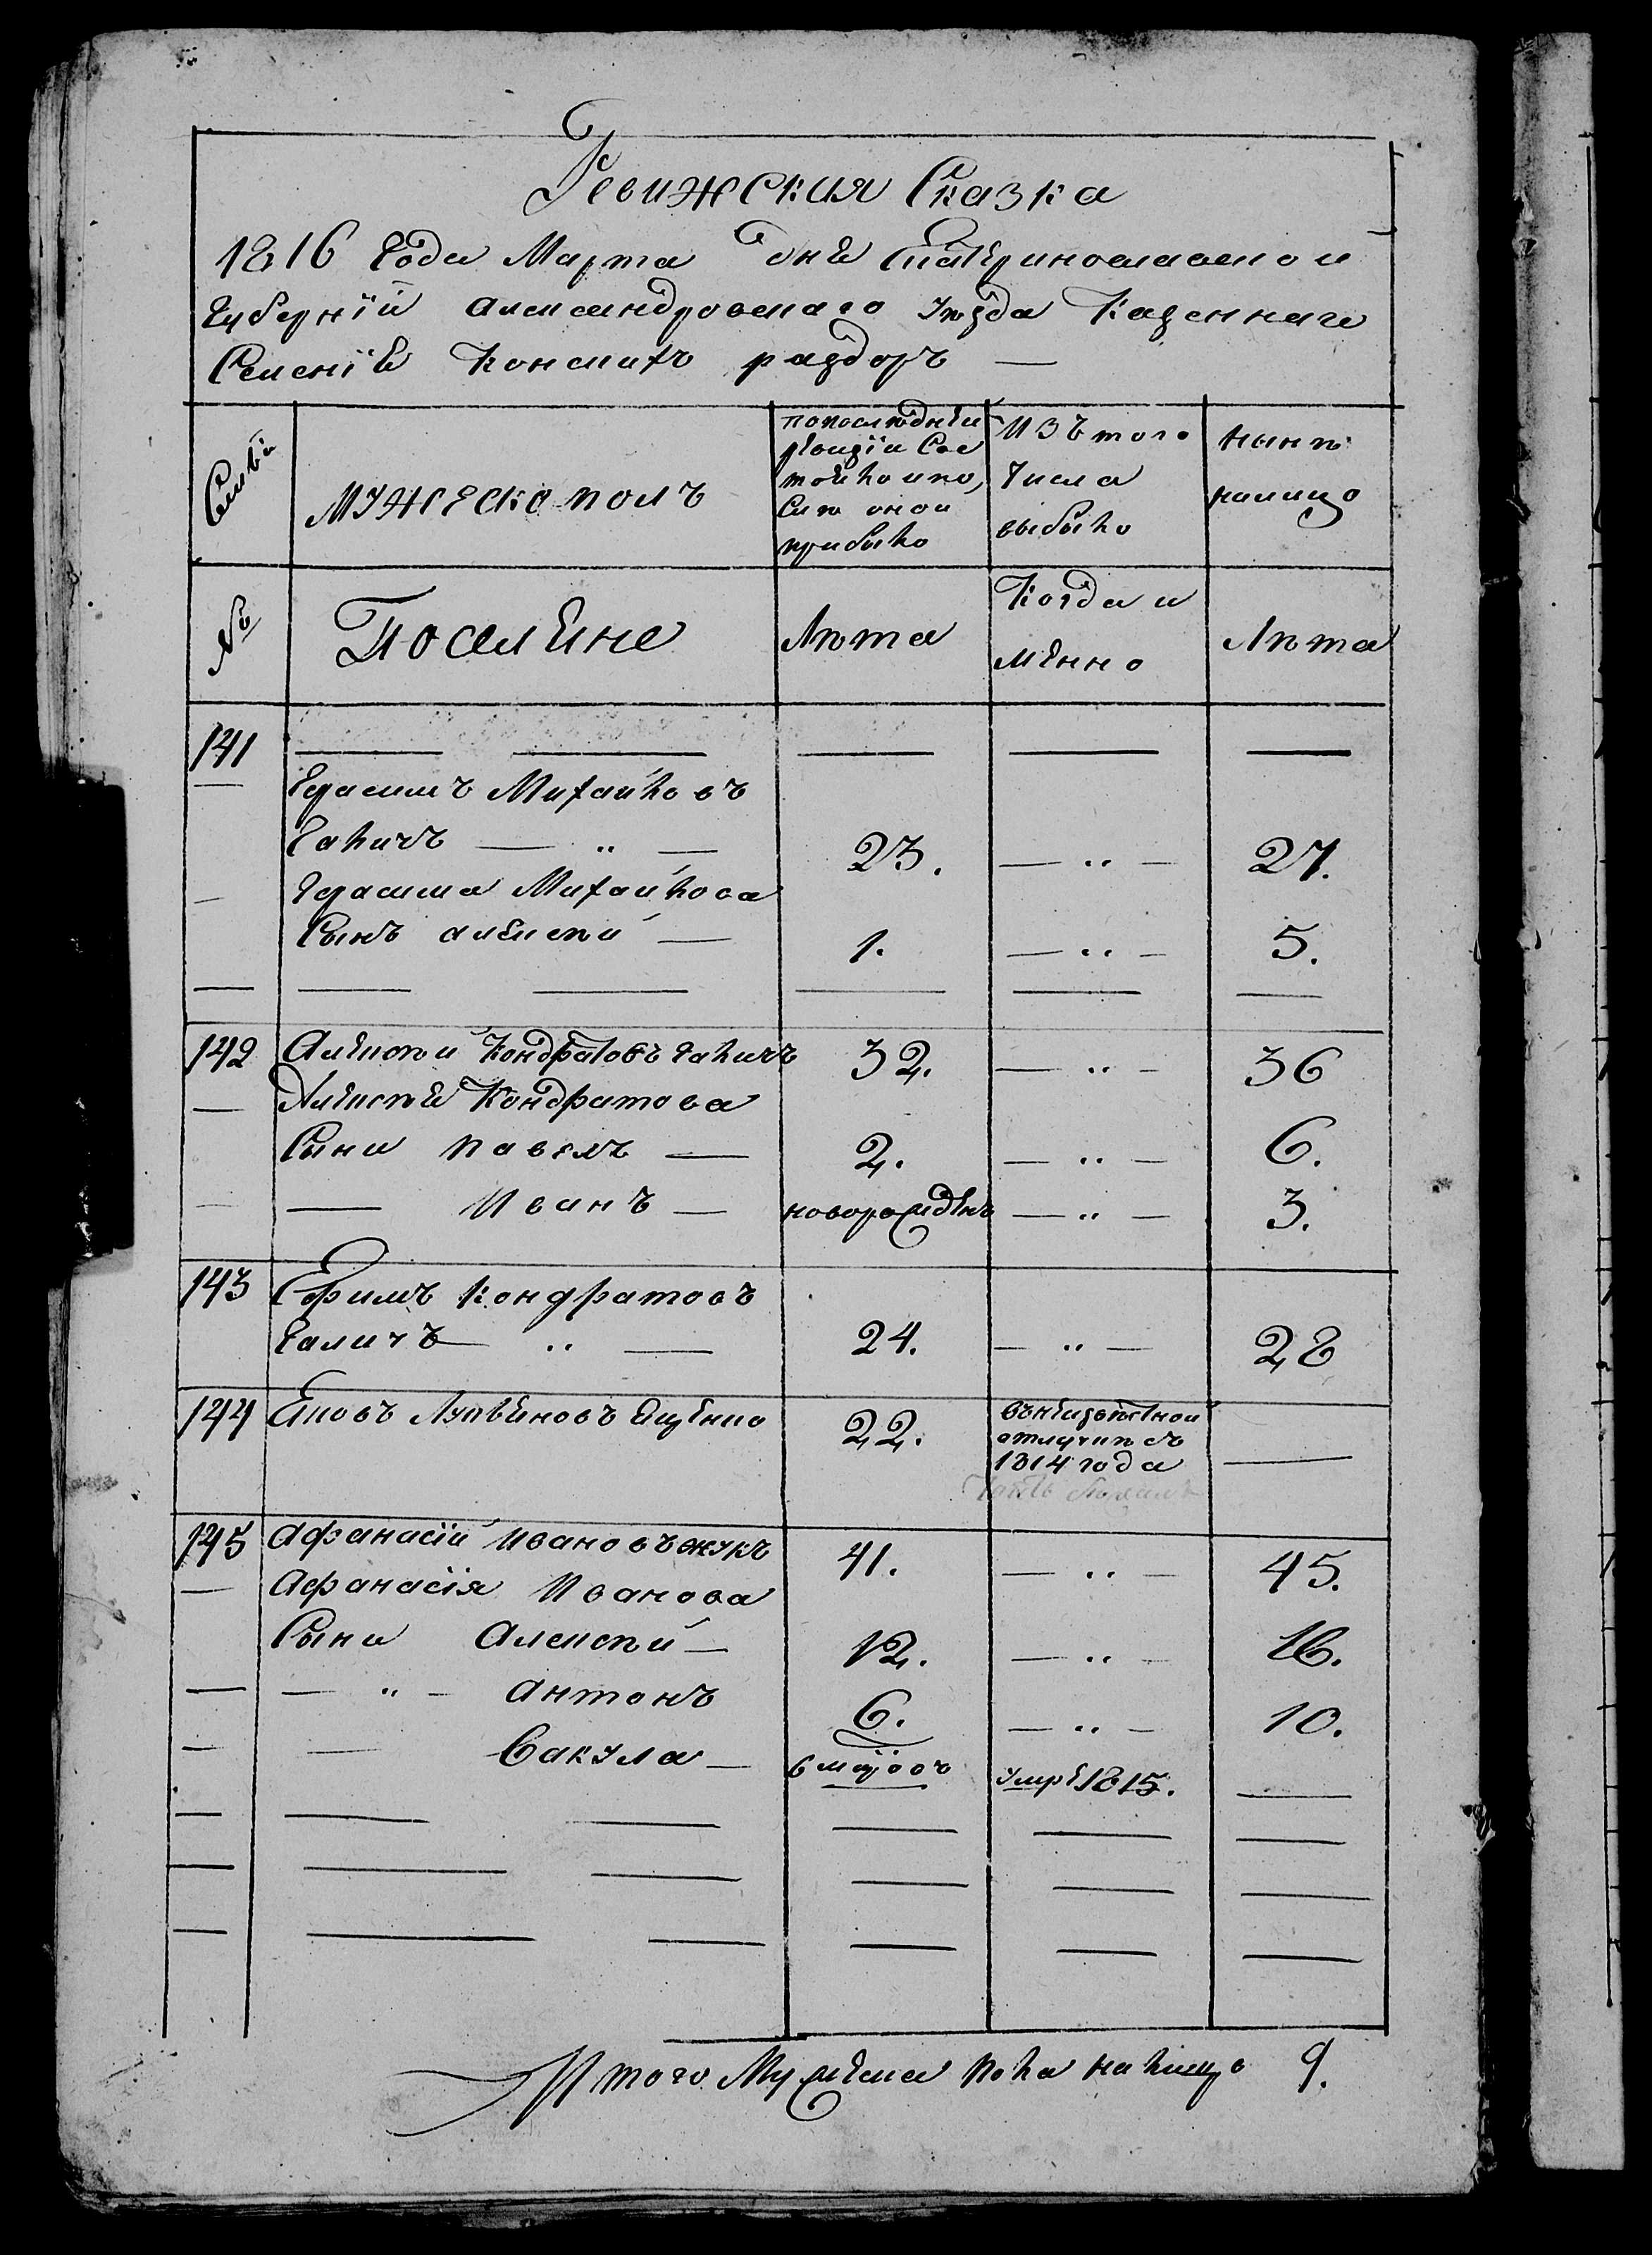 Ревижская Сказка
1816 года Марта дня Екатеринославской
губернїи Александровскаго уѣзда Казеннаго
Селенїе Конскихъ раздоръ —
Семьи
мужеско полъ
попослѣдней
ревизїи Сос
тояло ипо,
слѣ оной
прибыло
Изъ того
числа
выбыло
нынѣ
налицо
№
Поселяне
Лѣта
Когда и
менно
Лѣта
141
Герасимъ Михайловъ
Галичъ — „ — 23. — „ — 27.
Герасима Михайлова
Сынъ алексѣй — 1. — „ — 5.
142 Алексѣй Кондратовъ галичъ 32. — „ — 36
Алексѣя Кондратова
Сыни павелъ — 2. — „ — 6.
— Иванъ — новорожденъ — „ — 3.
143 Ефимъ Кондратовъ
Галичъ — „ — 24. — „ — 28
144 Яковъ Ященко 22.
вънеизвѣстной
отлучкѣ съ
1814 года
145 Афанасїй Ивановъ жукъ 41. — „ — 45.
— Афанасїя Иванова
Сыни Алексѣй — 12. — „ — 16.
— — „ — антонъ 6. — „ — 10.
— — Вакула — 6 умре 1815. —
Итого Мужеска пола налицо 9.